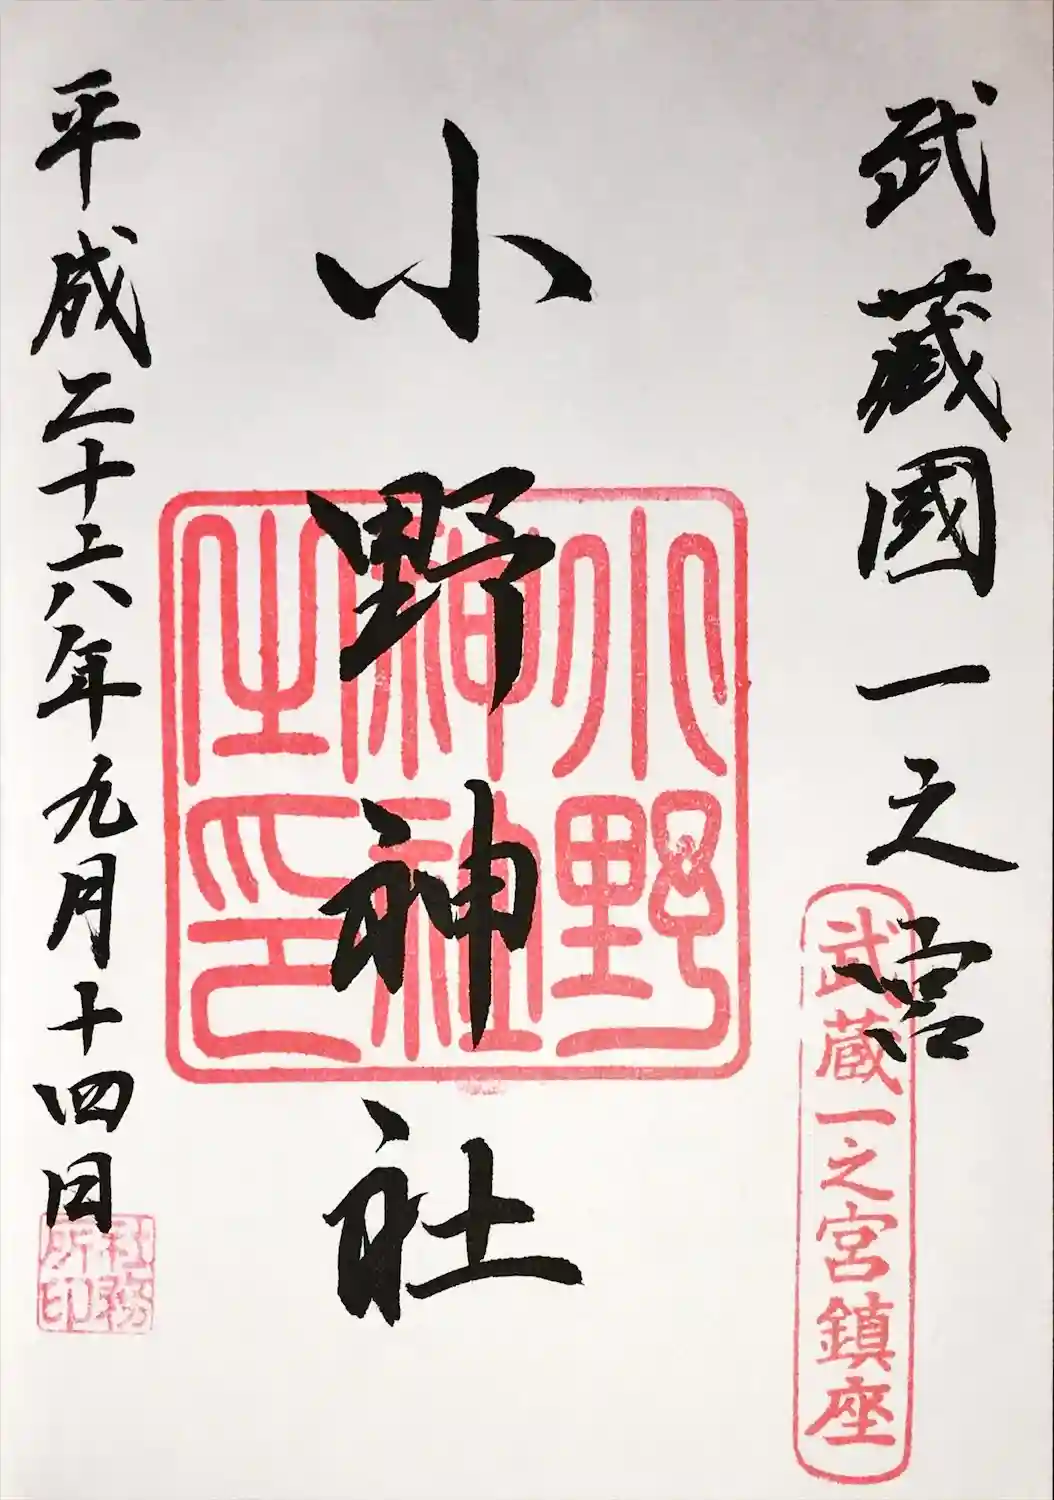 武蔵國一之宮
武蔵一之宮鎮座
小野神社
小野神社之印
平成二十六年九月十四日
社務所印